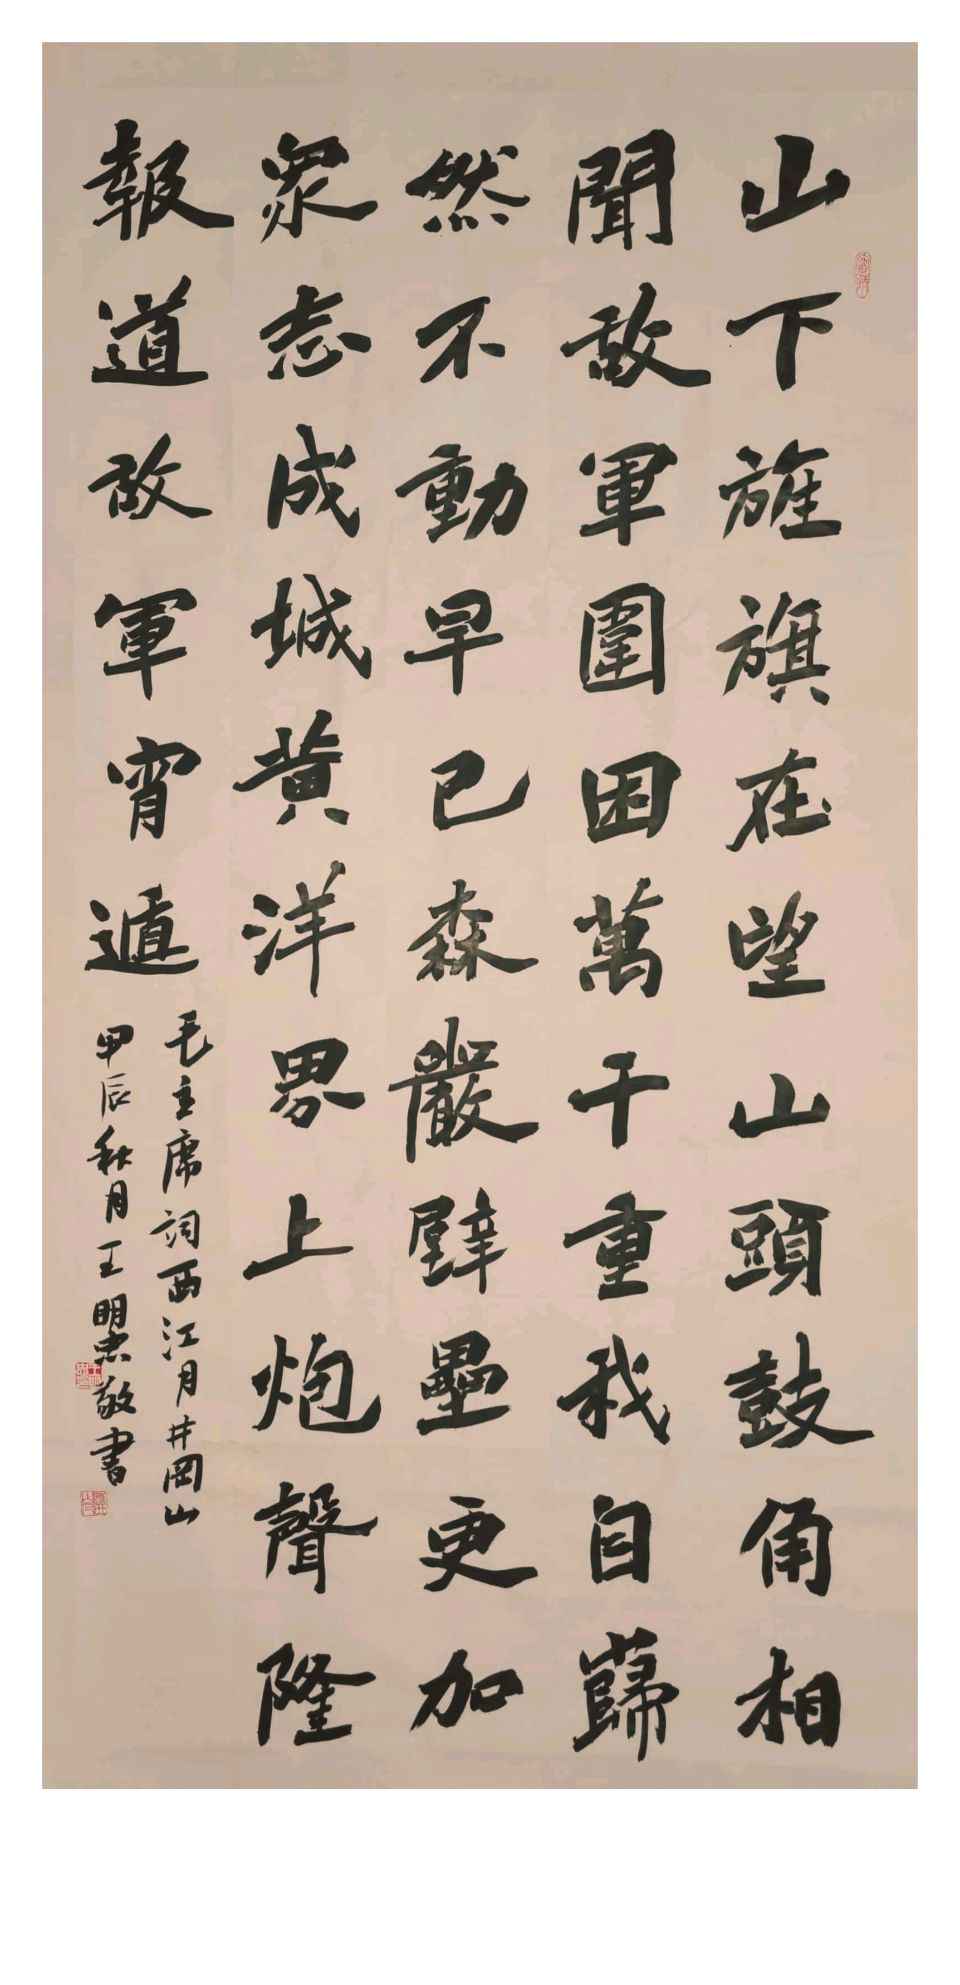 山下旌旗在望山頭鼓角相
聞敌軍圍困萬千重我自巋
然不動早已森嚴壁壘更加
衆志成城黄洋界上炮聲隆
報道敌軍宵遁
毛主席詞西江月井岡山
甲辰秋月王明忠敬書